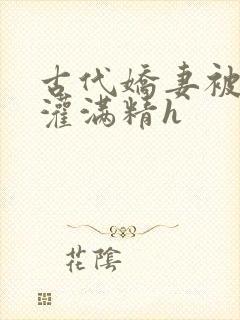 古代嬌妻被
灌滿精h
花陰